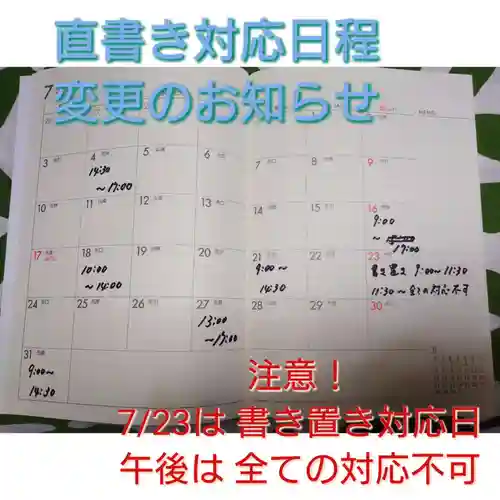 直書き対応日程
変更のお知らせ
7
3
4
5
6
7
8
9
14:30
~17:00
10
11
12
13
14
15
16
9:00
~
17:00
17
18
19
20
21
22
23
10:00
~14:00
9:00~
14:30
書き置き 9:00~11:30
11:30~全ての対応不可
24
25
26
27
28
29
30
13:00
~17:00
31
9:00~
14:30
注意！
7/23は 書き置き対応日
午後は 全ての対応不可